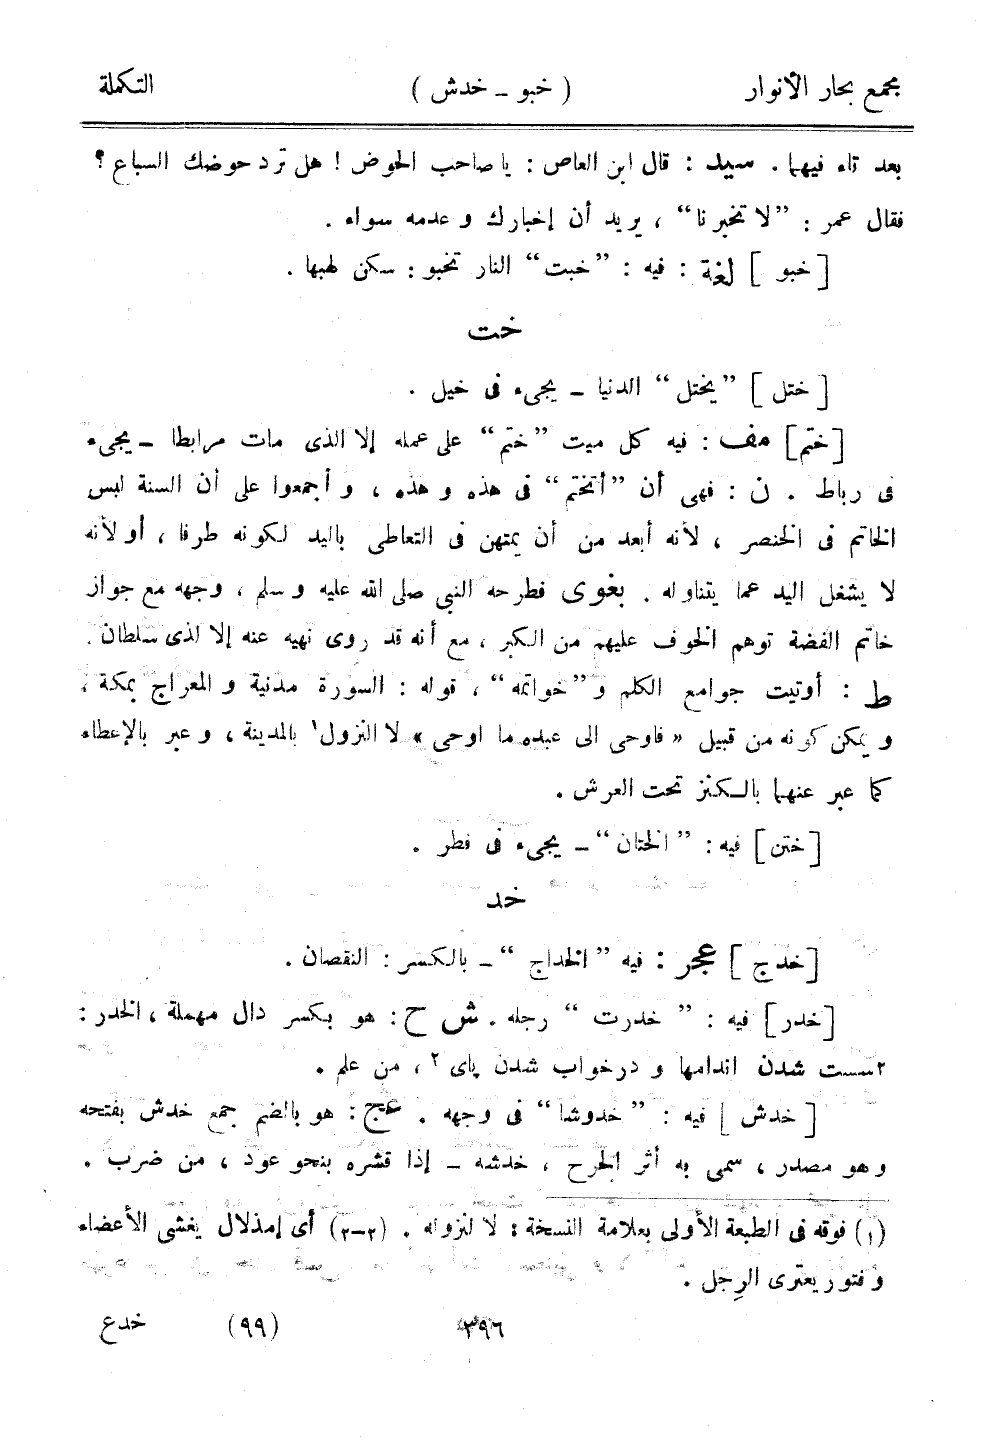 مجمع بحار الأنوار ( خبو ـ خدش ) التكملة
بعد تاء فيهما . سيد : قال ابن العاص : يا صاحب الحوض ! هل ترد حوضك السباع ؟
فقال عمر : ”لا تخبرنا“ ، يريد أن إخبارك و عدمه سواء .
[ خبو ] لغة : فيه : ”خبت“ النار تخبو : سكن لهبها .
خت
[ ختل ] ”يختل“ الدنيا ـ يجىء فى خيل .
[ختم] مف : فيه كل ميت ”ختم“ على عمله إلا الذى مات مرابطا ـ يجىء
فى رباط . ن : فهى أن ”أتختم“ فى هذه و هذه ، و أجمعوا على أن السنة لبس
الخاتم فى الخنصر ، لأنه أبعد من أن يمتهن فى التعاطى باليد لكونه طرفا ، أو لأنه
لا يشغل اليد عما يتناوله . بغوى فطرحه النبي صلى الله عليه و سلم ، وجهه مع جواز
خاتم الفضة توهم الخوف عليهم من الكبر ، مع أنه قد روى نهيه عنه إلا لذى سلطان .
ط : أوتيت جوامع الكلم و ”خواتمه“ ، قوله : السورة مدنية و المعراج بمكة ،
و يمكن كونه من قبيل « فاوحى الى عبده ما اوحى » لا النزول١ بالمدينة ، و عبر بالإعطاء
كما عبر عنهما بالكنز تحت العرش .
[ختن] فيه : ” الختان “ ـ يجىء فى فطر .
خد
[خدج ] عجر : فيه ”الخداج “ ـ بالكسر : النقصان .
[خدر] فيه : ” خدرت “ رجله . ش ح : هو بكسر دال مهملة ، الخدر :
٢سست شدن اندامها و درخواب شدن پاى٢ ، من علم .
[ خدش ] فيه : ”خدوشا“ فى وجهه . عج : هو بالضم جمع خدش بفتحه
و هو مصدر ، سمى به أثر الجرح ، خدشه ـ إذا قشره بنحو عود ، من ضرب .
(١) فوقه فى الطبعة الأولى بعلامة النسخة : لا لنزوله . (٢-٢) أى إمذلال يغشى الأعضاء
و فتور يعترى الرِجل .
٣٩٦ (٩٩) خدع